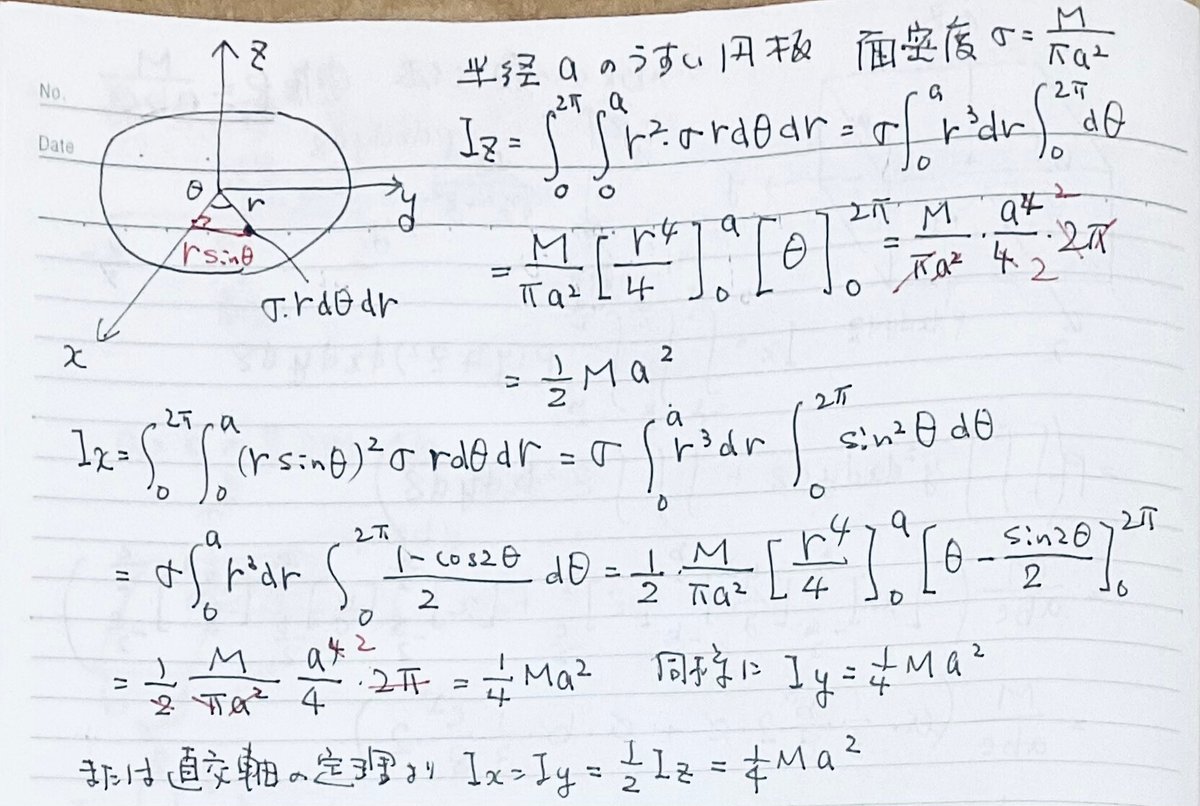 半径 a のうすい円板 面密度 σ = M/πa²
No.
Date
z
y
x
θ
r
r sinθ
σ.rdθdr
Iz = ∫₀^2π ∫₀^a r²·σrdθdr = σ∫₀^a r³dr ∫₀^2π dθ
= M/πa² [r⁴/4]₀^a [θ]₀^2π = M/πa² · a⁴/4 · 2π 2 2
= 1/2 Ma²
Ix = ∫₀^2π ∫₀^a (r sinθ)² σ rdθdr = σ ∫₀^a r³dr ∫₀^2π sin²θ dθ
= σ∫₀^a r³dr ∫₀^2π (1-cos2θ)/2 dθ = 1/2 · M/πa² [r⁴/4]₀^a [θ - sin2θ/2]₀^2π
= 1/2 M/πa² a⁴/4 · 2π 2 = 1/4 Ma² 同様に Iy = 1/4 Ma²
または直交軸の定理より Ix = Iy = 1/2 Iz = 1/4 Ma²